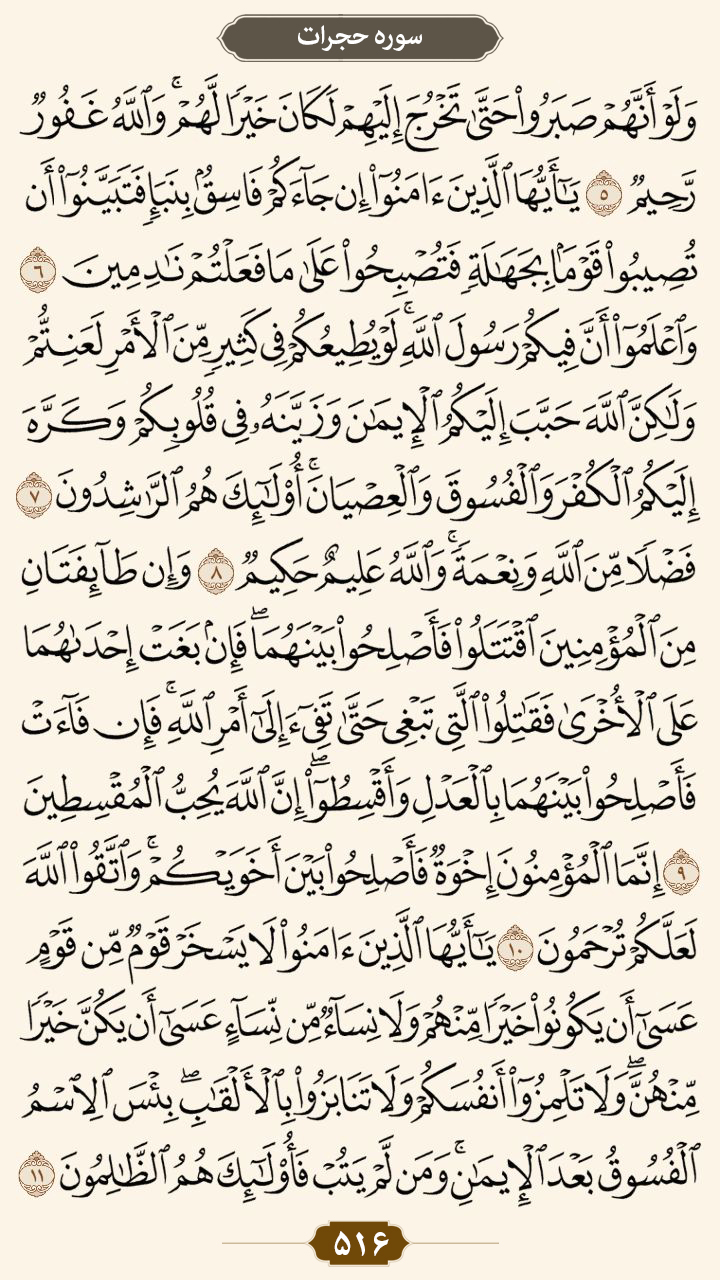 سوره حجرات
وَلَوْ أَنَّهُمْ صَبَرُوا۟ حَتَّىٰ تَخْرُجَ إِلَيْهِمْ لَكَانَ خَيْرًا لَّهُمْ ۚ وَٱللَّهُ غَفُورٌ
رَّحِيمٌ ٥ يَـٰٓأَيُّهَا ٱلَّذِينَ ءَامَنُوٓا۟ إِن جَآءَكُمْ فَاسِقٌۢ بِنَبَإٍ فَتَبَيَّنُوٓا۟ أَن
تُصِيبُوا۟ قَوْمًۢا بِجَهَـٰلَةٍ فَتُصْبِحُوا۟ عَلَىٰ مَا فَعَلْتُمْ نَـٰدِمِينَ ٦
وَٱعْلَمُوٓا۟ أَنَّ فِيكُمْ رَسُولَ ٱللَّهِ ۚ لَوْ يُطِيعُكُمْ فِى كَثِيرٍ مِّنَ ٱلْأَمْرِ لَعَنِتُّمْ
وَلَـٰكِنَّ ٱللَّهَ حَبَّبَ إِلَيْكُمُ ٱلْإِيمَـٰنَ وَزَيَّنَهُۥ فِى قُلُوبِكُمْ وَكَرَّهَ
إِلَيْكُمُ ٱلْكُفْرَ وَٱلْفُسُوقَ وَٱلْعِصْيَانَ ۚ أُو۟لَـٰٓئِكَ هُمُ ٱلرَّٰشِدُونَ ٧
فَضْلًا مِّنَ ٱللَّهِ وَنِعْمَةً ۚ وَٱللَّهُ عَلِيمٌ حَكِيمٌ ٨ وَإِن طَآئِفَتَانِ
مِنَ ٱلْمُؤْمِنِينَ ٱقْتَتَلُوا۟ فَأَصْلِحُوا۟ بَيْنَهُمَا ۖ فَإِنۢ بَغَتْ إِحْدَىٰهُمَا
عَلَى ٱلْأُخْرَىٰ فَقَـٰتِلُوا۟ ٱلَّتِى تَبْغِى حَتَّىٰ تَفِىٓءَ إِلَىٰٓ أَمْرِ ٱللَّهِ ۚ فَإِن فَآءَتْ
فَأَصْلِحُوا۟ بَيْنَهُمَا بِٱلْعَدْلِ وَأَقْسِطُوٓا۟ ۖ إِنَّ ٱللَّهَ يُحِبُّ ٱلْمُقْسِطِينَ
٩ إِنَّمَا ٱلْمُؤْمِنُونَ إِخْوَةٌ فَأَصْلِحُوا۟ بَيْنَ أَخَوَيْكُمْ ۚ وَٱتَّقُوا۟ ٱللَّهَ
لَعَلَّكُمْ تُرْحَمُونَ ١٠ يَـٰٓأَيُّهَا ٱلَّذِينَ ءَامَنُوا۟ لَا يَسْخَرْ قَوْمٌ مِّن قَوْمٍ
عَسَىٰٓ أَن يَكُونُوا۟ خَيْرًا مِّنْهُمْ وَلَا نِسَآءٌ مِّن نِّسَآءٍ عَسَىٰٓ أَن يَكُنَّ خَيْرًا
مِّنْهُنَّ ۖ وَلَا تَلْمِزُوٓا۟ أَنفُسَكُمْ وَلَا تَنَابَزُوا۟ بِٱلْأَلْقَـٰبِ ۖ بِئْسَ ٱلِٱسْمُ
ٱلْفُسُوقُ بَعْدَ ٱلْإِيمَـٰنِ ۚ وَمَن لَّمْ يَتُبْ فَأُو۟لَـٰٓئِكَ هُمُ ٱلظَّـٰلِمُونَ ١١
۵۱۶